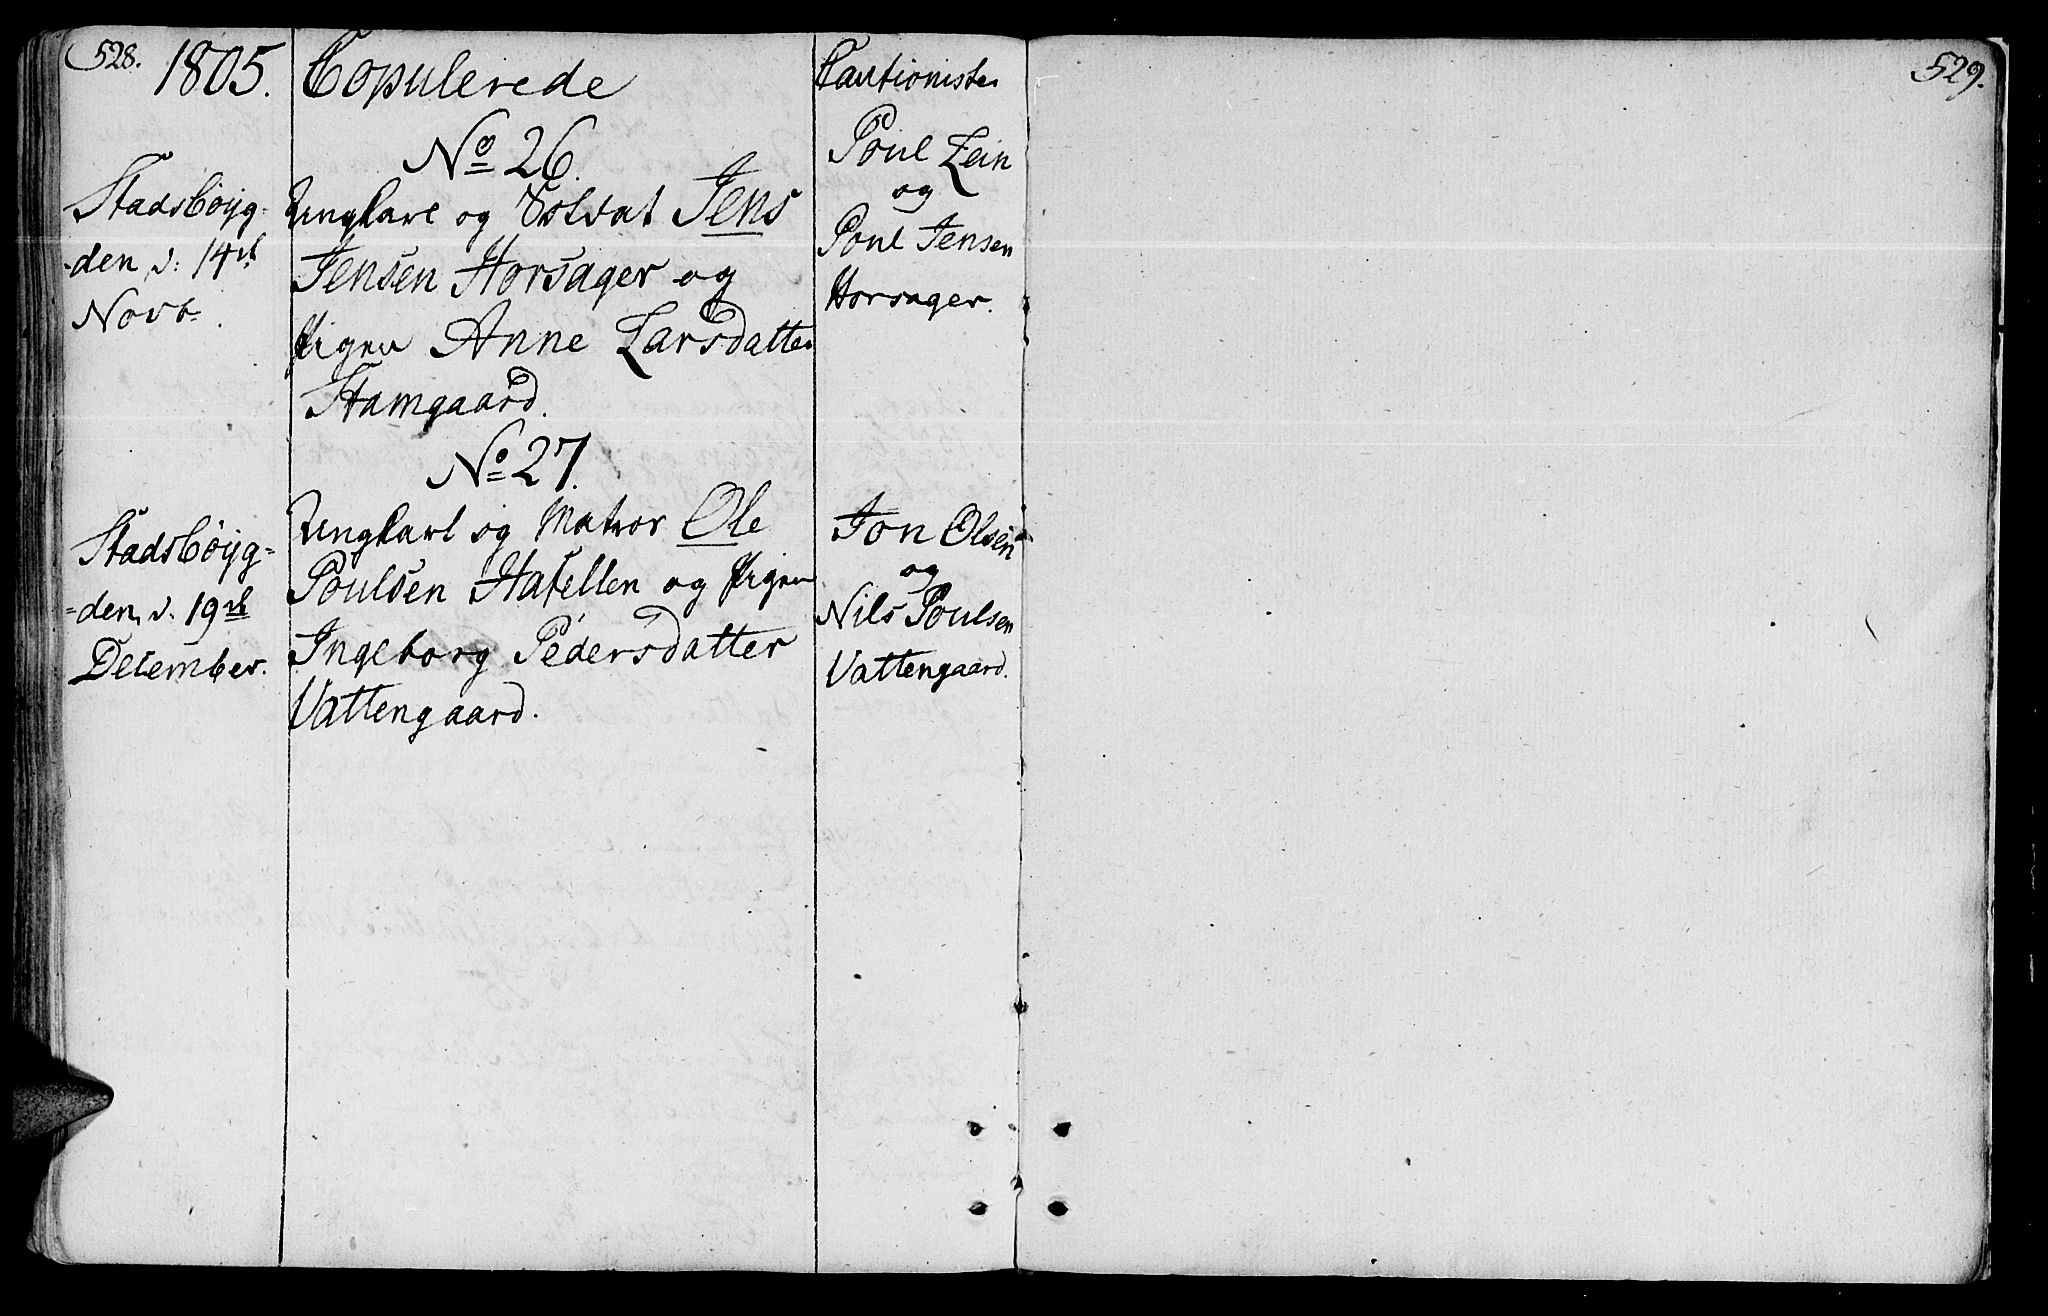 528. 1805. Copulerede Cautionister
No 26.
Stadsbøyg-
-den d. 14de
Novb.
Ungkarl og Soldat Jens
Jensen Horsager og
Pigen Anne Larsdatter
Hamgaard.
Poul Lein
og
Poul Jensen
Horsager.
No 27.
Stadsbøyg=
=den, d. 19de
December.
Ungkarl og Matros Ole
Poulsen Hafellen og Pigen
Ingeborg Pedersdatter
Vattengaard.
Jon Olsen
og
Nils Poulsen
Vattengaard.
529.